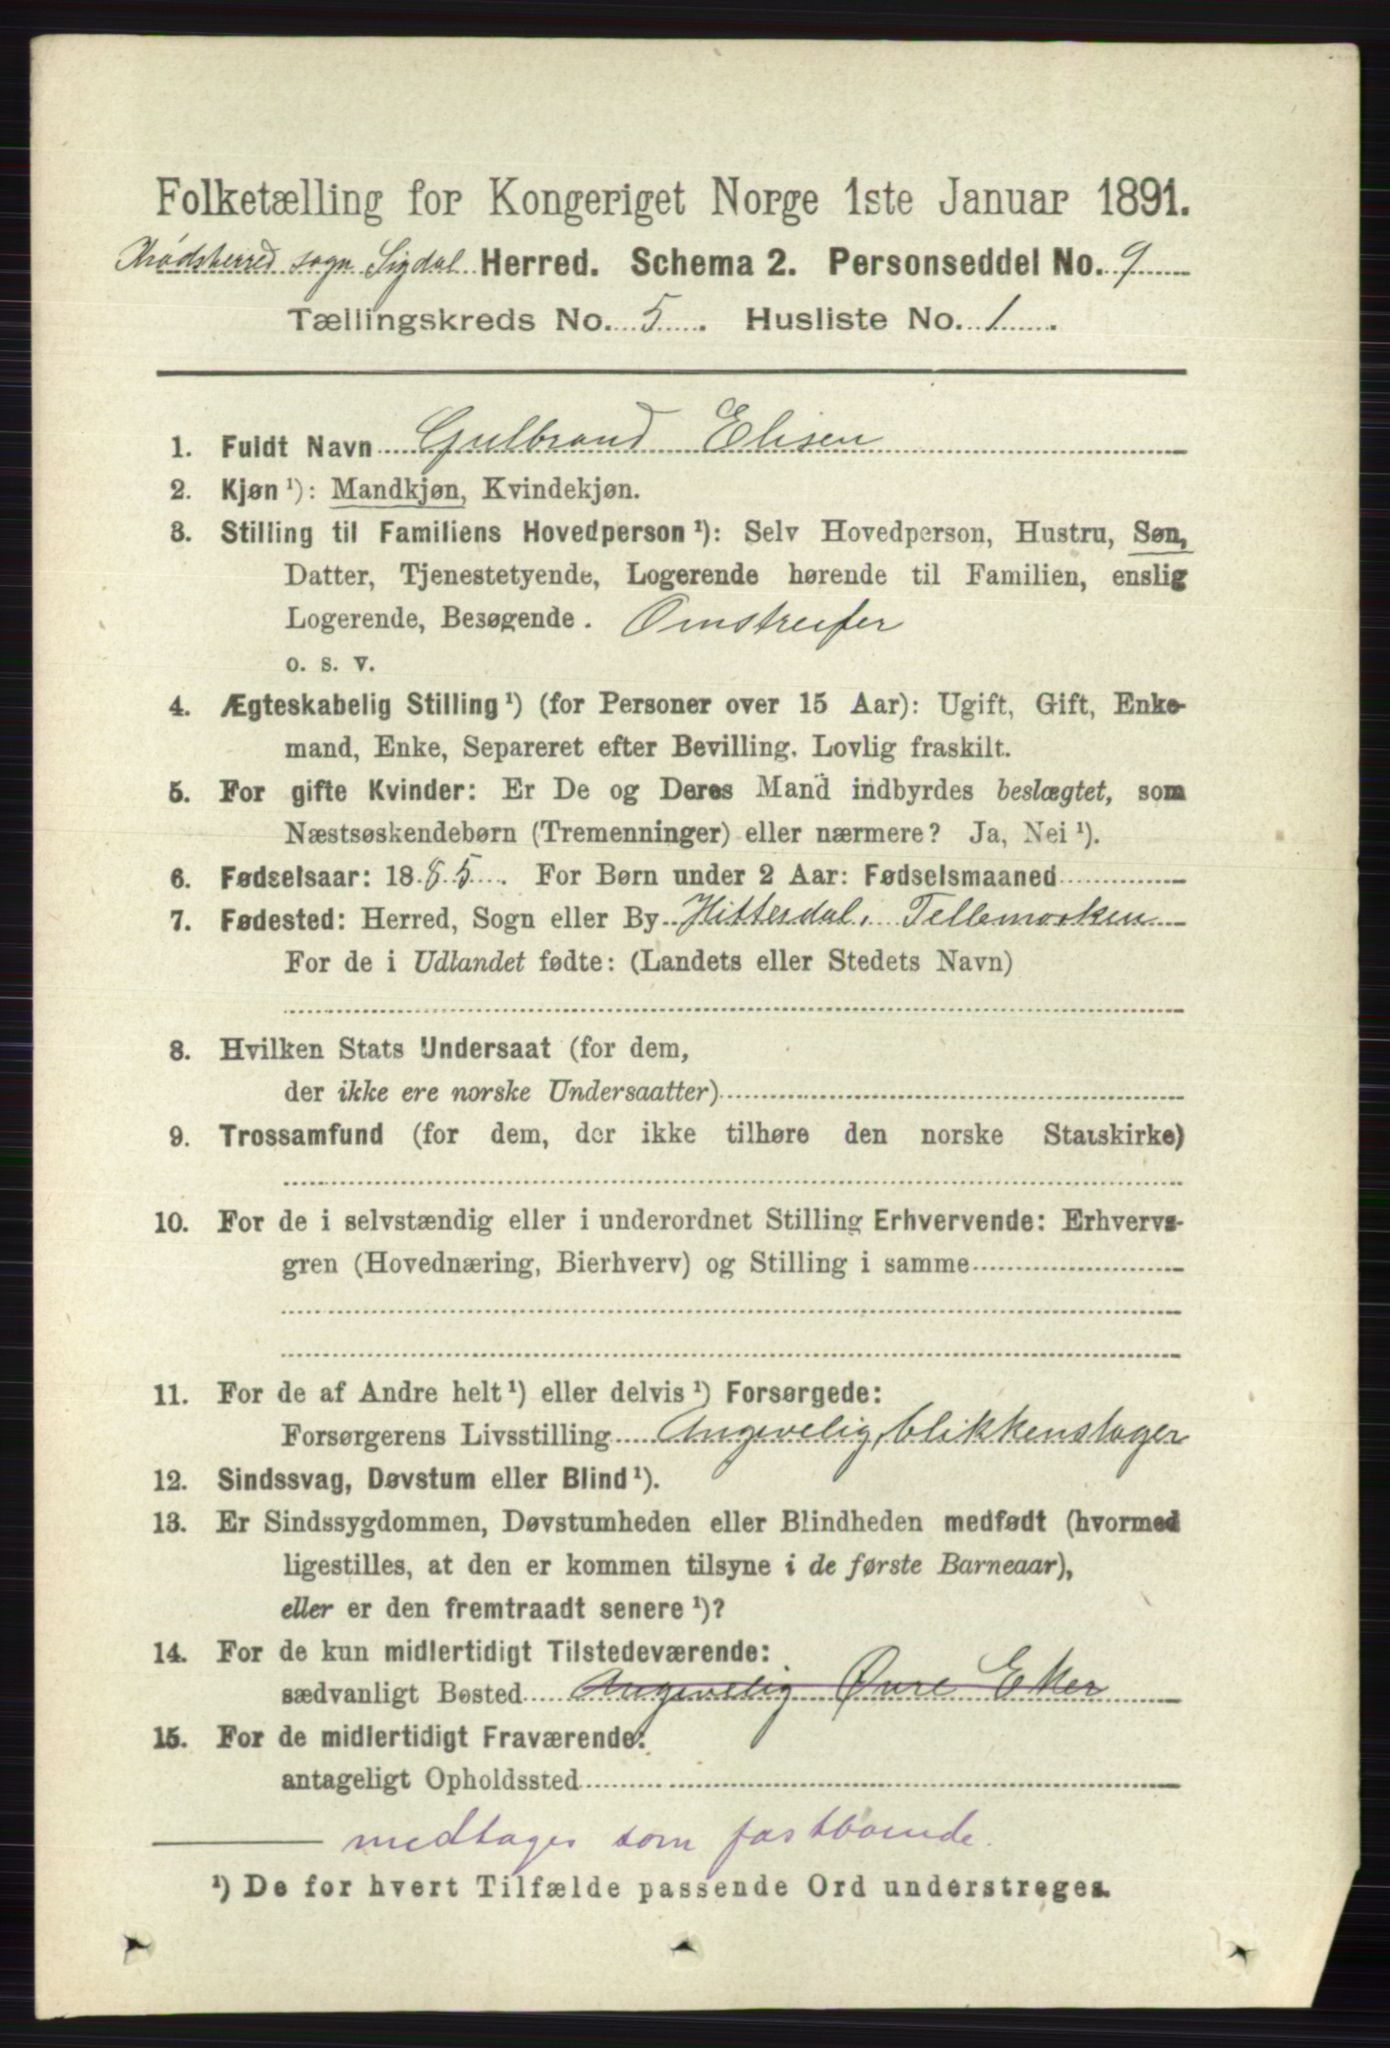 Folketælling for Kongeriget Norge 1ste Januar 1891.
Krødsherred sogn Sigdal Herred. Schema 2. Personseddel No. 9
Tællingskreds No. 5. Husliste No. 1.
1. Fuldt Navn Gulbrand Elisen
2. Kjøn ¹): Mandkjøn, Kvindekjøn.
3. Stilling til Familiens Hovedperson ¹): Selv Hovedperson, Hustru, Søn,
Datter, Tjenestetyende, Logerende hørende til Familien, enslig
Logerende, Besøgende. Omstreifer
o. s. v.
4. Ægteskabelig Stilling ¹) (for Personer over 15 Aar): Ugift, Gift, Enke-
mand, Enke, Separeret efter Bevilling. Lovlig fraskilt.
5. For gifte Kvinder: Er De og Deres Mand indbyrdes beslægtet, som
Næstsøskendebørn (Tremenninger) eller nærmere? Ja, Nei ¹).
6. Fødselsaar: 1885. For Børn under 2 Aar: Fødselsmaaned
7. Fødested: Herred, Sogn eller By Hitterdal i Tellemarken
For de i Udlandet fødte: (Landets eller Stedets Navn)
8. Hvilken Stats Undersaat (for dem,
der ikke ere norske Undersaatter)
9. Trossamfund (for dem, der ikke tilhøre den norske Statskirke)
10. For de i selvstændig eller i underordnet Stilling Erhvervende: Erhvervs-
gren (Hovednæring, Bierhverv) og Stilling i samme
11. For de af Andre helt ¹) eller delvis ¹) Forsørgede:
Forsørgerens Livsstilling Angivelig blikkenslager
12. Sindssvag, Døvstum eller Blind ¹).
13. Er Sindssygdommen, Døvstumheden eller Blindheden medfødt (hvormed
ligestilles, at den er kommen tilsyne i de første Barneaar),
eller er den fremtraadt senere ¹)?
14. For de kun midlertidigt Tilstedeværende:
sædvanligt Bosted Angivelig Øvre Eker
15. For de midlertidigt Fraværende:
antageligt Opholdssted
medtages som fastboende.
¹) De for hvert Tilfælde passende Ord understreges.